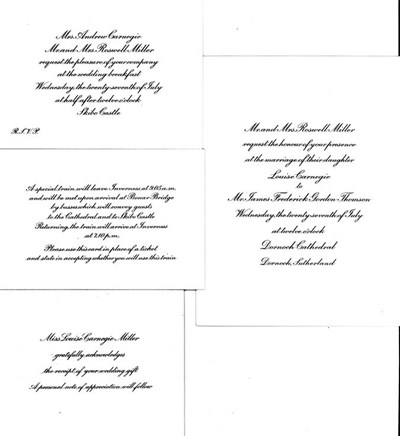 Mrs. Andrew Carnegie
Mr and Mrs. Roswell Miller
request the pleasure of your company
at the wedding breakfast
Wednesday, the twenty-seventh of July
at half after twelve o'clock
Skibo Castle
R.S.V.P.
A special train will leave Inverness at 9.05 a.m.
and will be met upon arrival at Bonar Bridge
by busses which will convey guests
to the Cathedral and to Skibo Castle
Returning, the train will arrive at Inverness
at 7.10 p.m.
Please use this card in place of a ticket
and state in accepting whether you will use this train
Miss Louise Carnegie Miller
gratefully acknowledges
the receipt of your wedding gift
A personal note of appreciation will follow
Mr and Mrs. Roswell Miller
request the honour of your presence
at the marriage of their daughter
Louise Carnegie
to
Mr. James Frederick Gordon Thomson
Wednesday, the twenty-seventh of July
at twelve o'clock
Dornoch Cathedral
Dornoch, Sutherland